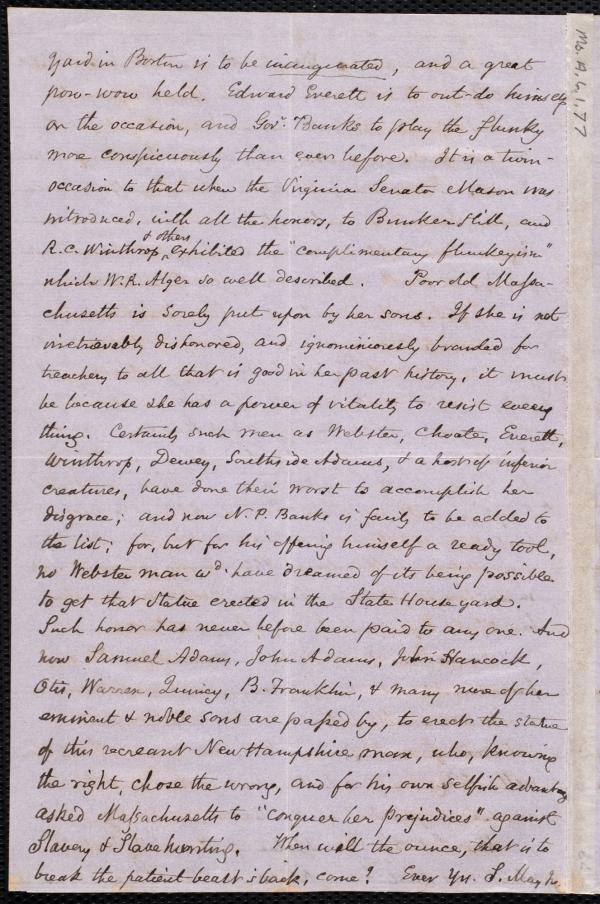 yard in Boston is to be inaugurated, and a great
pow-wow held. Edward Everett is to out-do himself
on the occasion, and Gov.r Banks to play the flunky
more conspicuously than ever before. It is a twin-
occasion to that when the Virginia Senator Mason was
introduced, with all the honors, to Bunker Hill, and
R.C. Winthrop & others exhibited the "complimentary flunkeyism"
which W.R. Alger so well described. Poor old Massa-
chusetts is sorely put upon by her sons. If she is not
irretrievably dishonored, and ignominiously branded for
treachery to all that is good in her past history, it must
be because she has a power of vitality to resist every
thing. Certainly such men as Webster, Choate, Everett,
Winthrop, Dewey, Southside Adams, & a host of inferior
creatures, have done their worst to accomplish her
disgrace; and now N.P. Banks is fairly to be added to
the list; for, but for his offering himself a ready tool,
no Webster man wd. have dreamed of its being possible
to get that statue erected in the State House yard.
Such honor has never before been paid to any one. And
now Samuel Adams, John Adams, John Hancock,
Otis, Warren, Quincy, B. Franklin, & many more of her
eminent & noble sons are passed by, to erect the statue
of this recreant New Hampshire man, who, knowing
the right, chose the wrong, and for his own selfish advantage
asked Massachusetts to "conquer her prejudices" against
Slavery & Slavehunting. When will the ounce, that is to
break the patient beast's back, come? Ever Yrs. S. May, Jr.
Ms.A.6.1.77